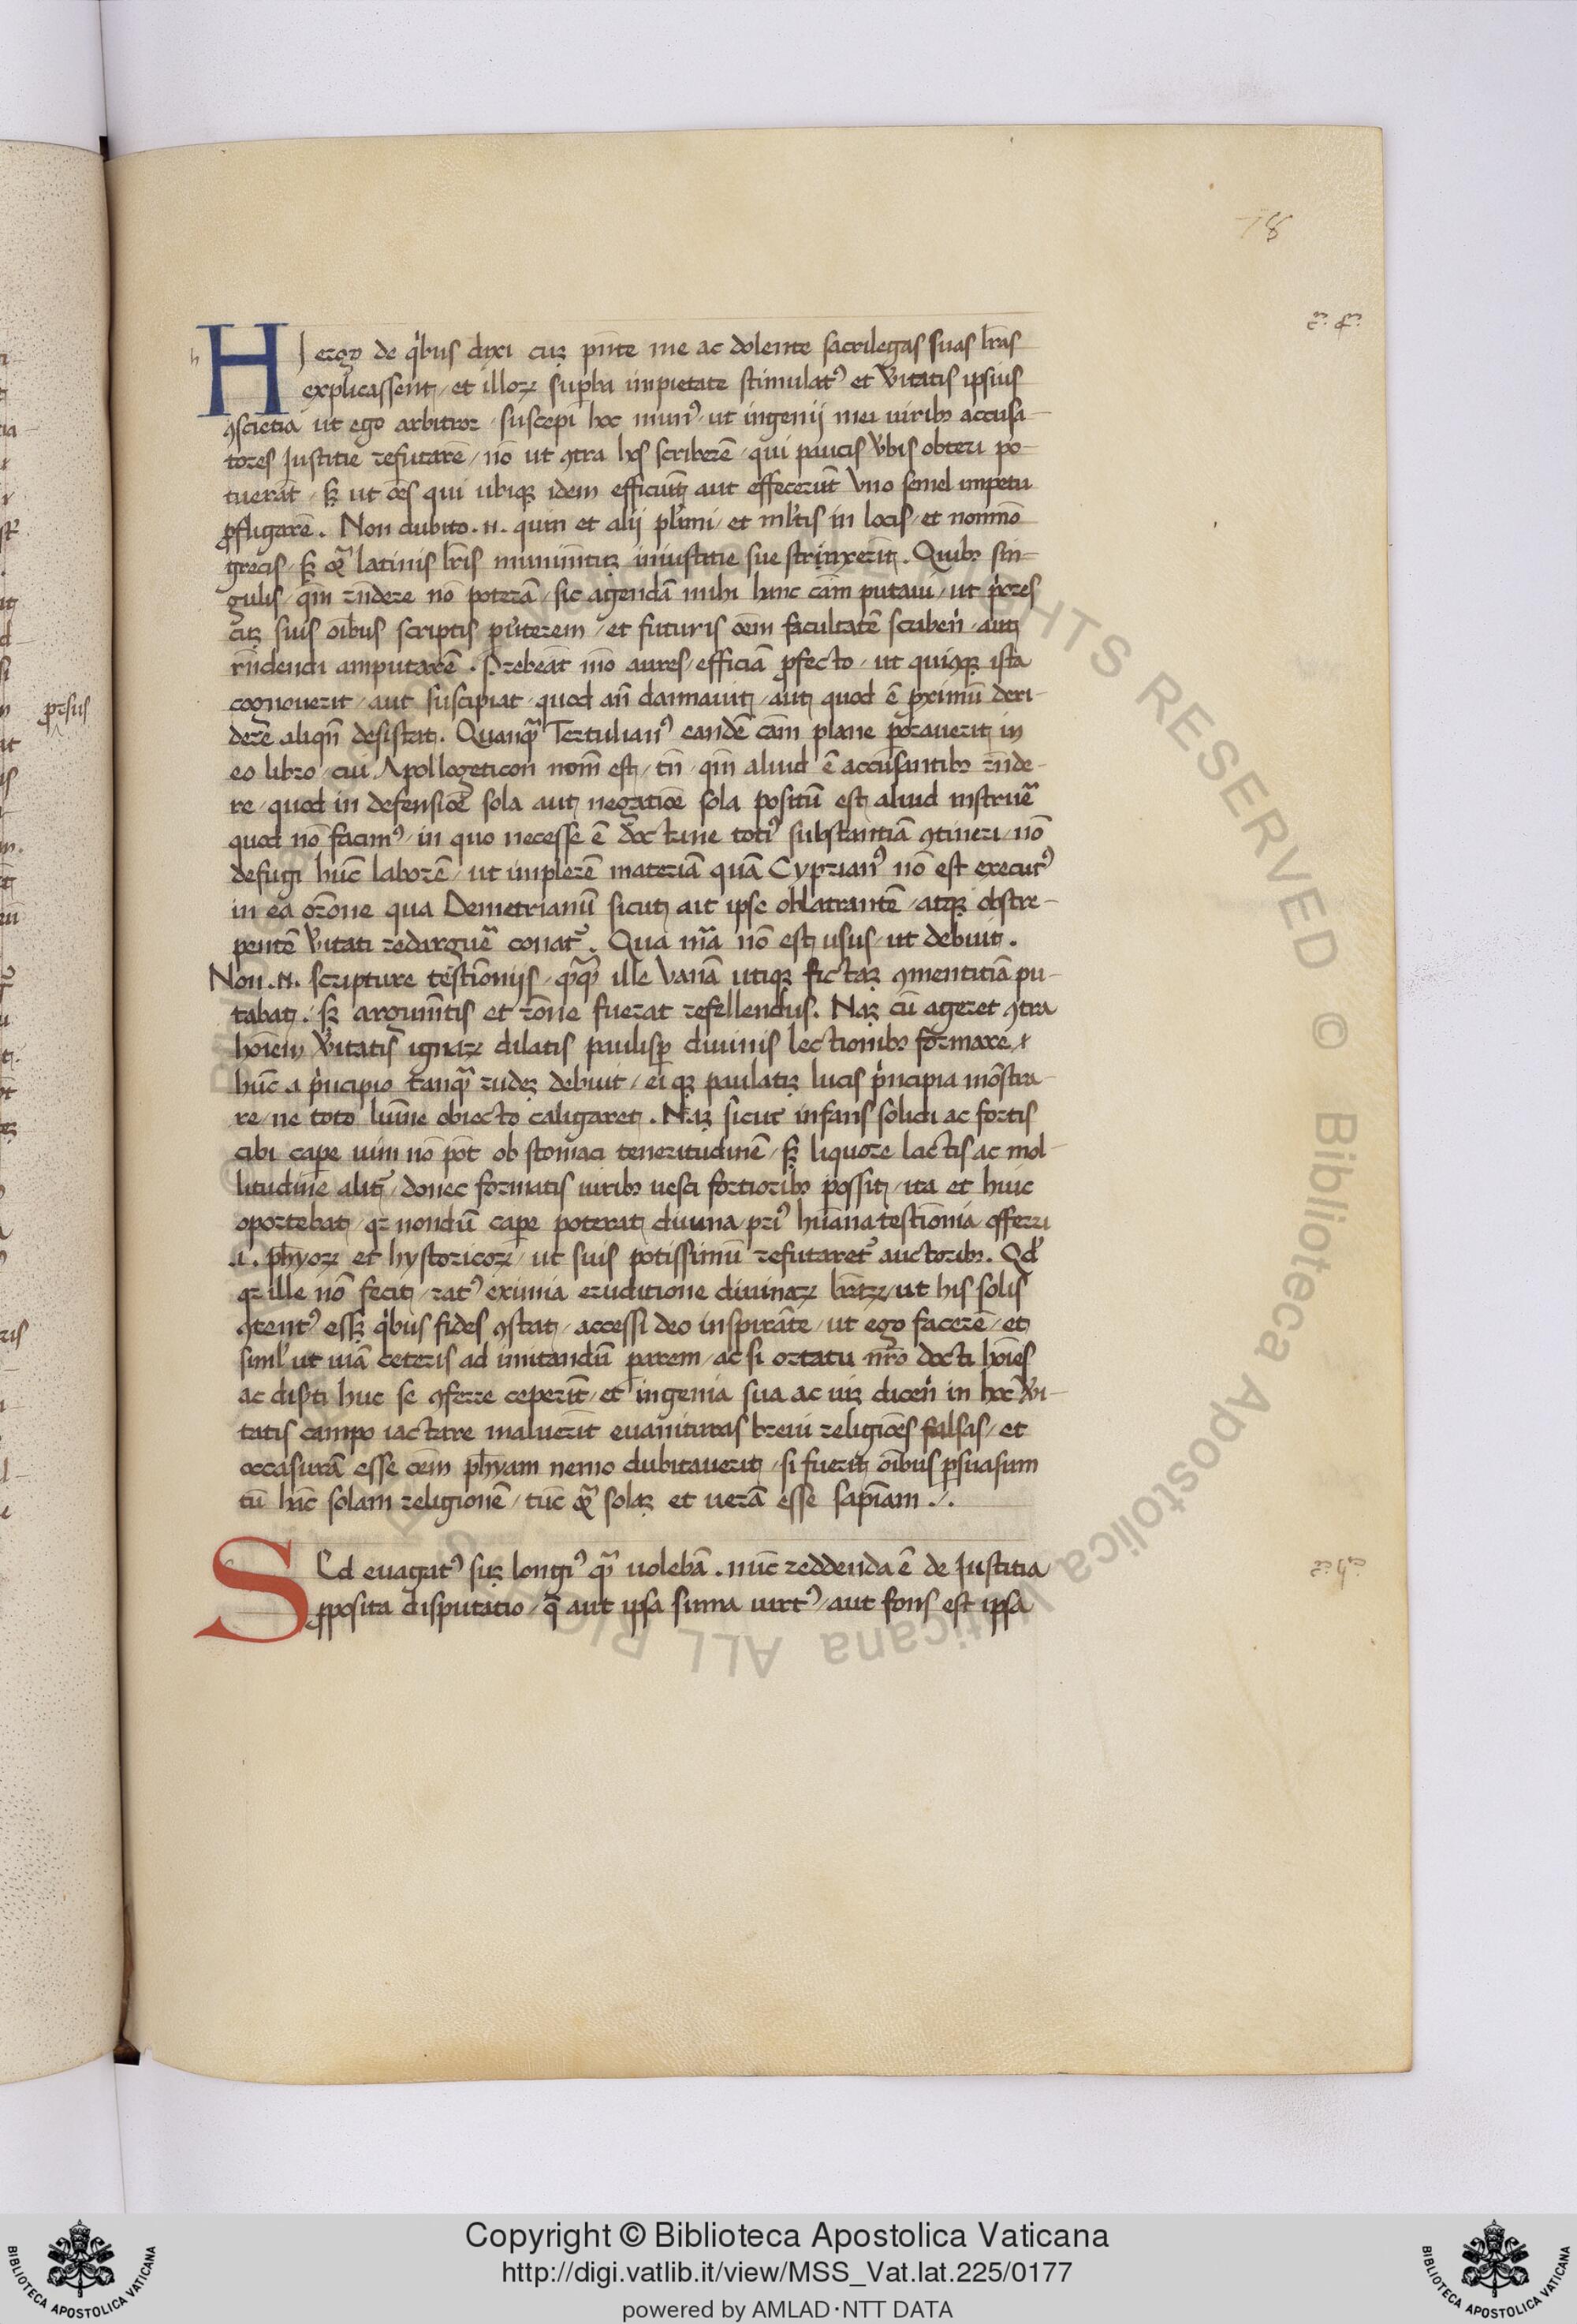 78
c̄. 4ᵐ.
HI ergo de qͥbus dixi cuꝫ pn̄te me ac dolente sacrilegas suas lr̄as
explicassent, et illoꝝ suꝑba impietate stimulatꝰ et v̓itatis ipsius
ꝯsciētia ut ego arbitror, suscepi hoc munꝰ, ut ingenij mei uiribꝫ accusa-
tores Iustitie refutarē, nō ut ꝯtra hos scriberē, qui paucis v̓bis obteri po-
tuerāt, sꝫ ut oēs qui ubiqꝫ idem efficiunt aut effecerūt Vno semel impetu
ꝓfligarē. Non dubito .n. quin et alij pl̓imi, et ml̓tis in locis, et nonmō
grecis, sꝫ qꝫ latinis lr̄is munimītuꝫ iniustitie sue strinxerit. Quibꝫ sin=
gulis, qm̄ rn̄dere nō poterā, sic agendā mihi hanc cām putaui, ut pͥores
cūꝫ suis oībus scriptis ꝑu̓terem, et futuris oēm facultatē scribēn̓, aut
rn̄dendi amputarē. Prebeāt mō aures, efficiā ꝓfecto, ut quiqꝫ ista
cognouerit, aut suscipiat, quod an̄ damnauit, aut quod ē ꝓximū deri-
dere aliqn̄ desistat. Quanqᷓ Tertulianꝰ eandē cām plane ꝑorauerit in
eo libro, cui Apollogeticon nom̄ est, tn̄, qm̄ aliud ē accusantibꝫ rn̄de-
re, quod in defensiōe sola aut negatiōe sola positū est aliud instrue᷑
quod nō facimꝰ, in quo necesse ē doctrine totiꝰ substantiā ꝯtineri, nō
defugi hūc laborē, ut implerē materiā quā Cyprianꝰ nō est executꝰ
in ea orōne qua Demetrianū sicut ait ipse oblatrantē, atqꝫ obstre-
pentē v̓itati redargue᷑ conat᷑. Qua mā nō est usus, ut debuit.
Non .N. scripture testīonijs, qᷓqᷓ ille Vanā utiqꝫ fictaꝫ ꝯmentitiā pu-
tabat, sꝫ argumītis et rōne fuerat refellendus. Naꝫ cū ageret ꝯtra
hoīem v̓itatis ignaꝝ dilatis paulisꝑ diuinis lectionibꝫ formare
hūc a pͥncipio tanqᷓ rudeꝫ debuit, ei qꝫ paulatiꝫ lucis pͥncipia mōstra-
re, ne toto lumīe obiecto caligaret. Naꝫ sicut infans solidi ac fortis
cibi caꝑe uim nō pōt ob stomaci teneritudinē, sꝫ liquore lactis ac mol-
litudine alit᷑, donec formatis uiribꝫ uesci fortioribꝫ possit, ita et huic
oportebat, qꝛ nondū caꝑe poterat diuina, priꝰ humāna testīonia, offerri
.i. ph̄yoꝝ et hystoricoꝝ, ut suis potissimū refutaret᷑ auctoribꝫ. Qd̓
qꝛ ille nō fecit, ratꝰ eximia eruditione diuinaꝝ lr̄aꝝ, ut his solis
ꝯtentꝰ esseꝫ qͥbus fides ꝯstat, accessi deo inspirāte, ut ego facerē, et
siml̓ ut uiā ceteris ad imitandū ꝑarem, ac si ortatu nr̄o docti hoīes
ac diserti huc se ꝯferre ceperīt, et ingenia sua ac uiꝫ dicen̓ in hoc v̓i-
tatis campo iactare maluerīt euanituras breui religiōes falsas, et
occasurā esse oēm ph̄yam nemo dubitauerit, si fuerit oībus ꝑsuasum
tū hāc solam religionē, tūc qᷓ solaꝫ et uerā esse sapīam ./.
c. 5ᵐ.
SEd euagatꝰ suꝫ longiꝰ qᷓ uolebā. nūc reddenda ē de Iustitia
ꝓposita disputatio, q̄ aut ipsa suma uirtꝰ, aut fons est ipsa
ꝓrsus
Copyright © Biblioteca Apostolica Vaticana
http://digi.vatlib.it/view/MSS_Vat.lat.225/0177
powered by AMLAD·NTT DATA
BIBLIOTECA APOSTOLICA VATICANA
BIBLIOTECA APOSTOLICA VATICANA